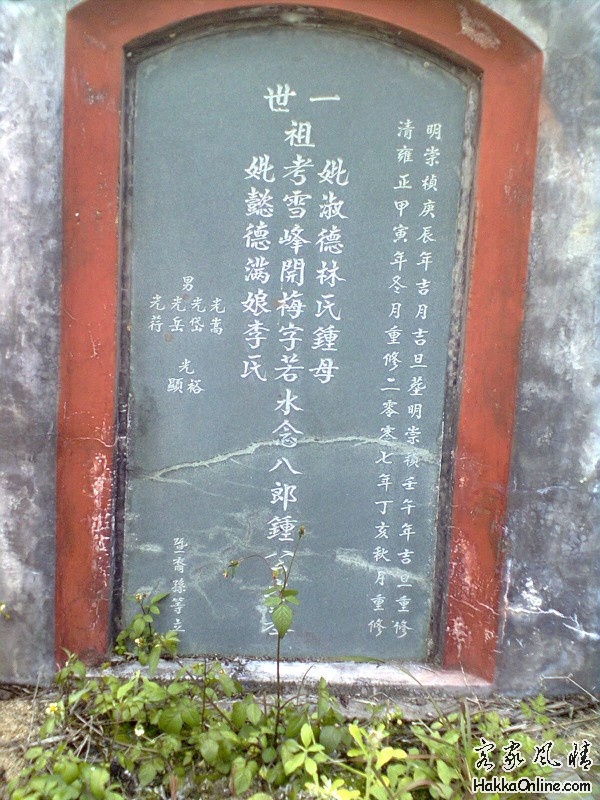 明崇禎庚辰年吉月吉旦塟明崇禎壬午年吉旦重修
清雍正甲寅年冬月重修二零零七年丁亥秋月重修
一世
祖
妣淑德林氏鍾母
考雪峰開梅字若水念八郎鍾公
妣懿德滿娘李氏
男
光嵩
光岱
光岳
光荇
光
裕
顯
暨裔孫等立
客家風情
HakkaOnline.com